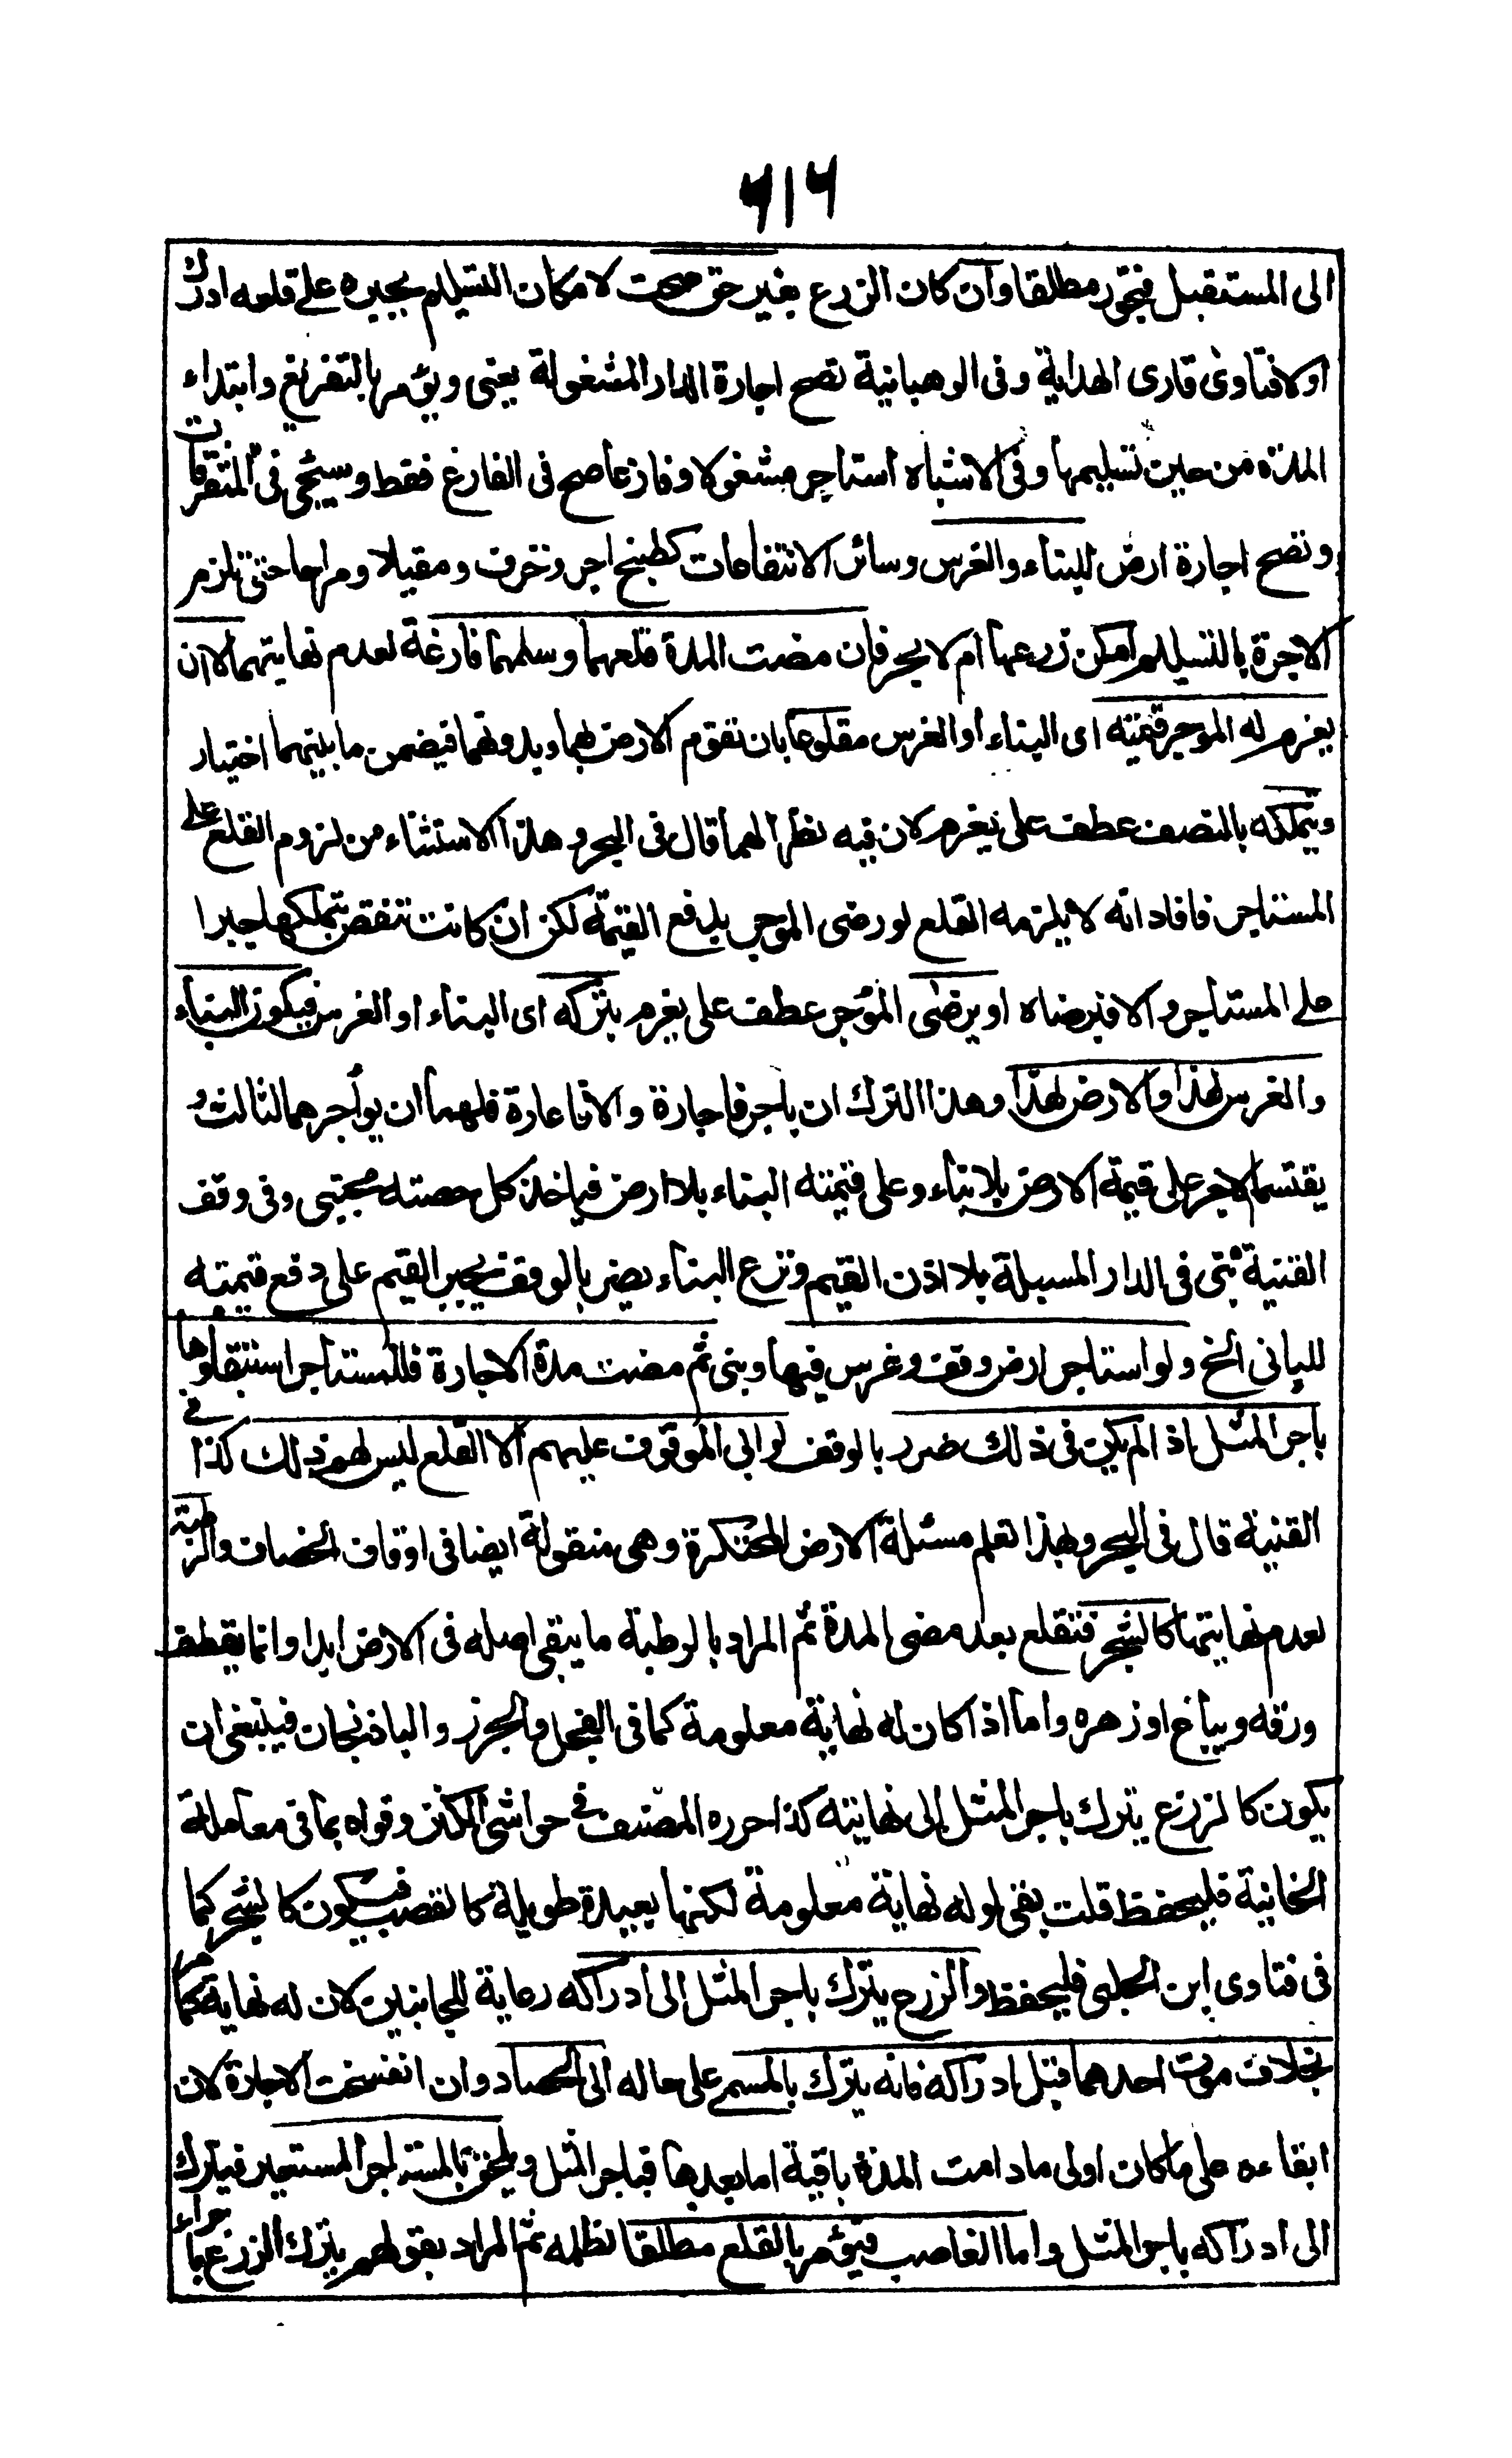 ۶۱۶
الى المستقبل فتجوز مطلقا وان كان الزرع بغير حق صحت لامكان التسليم بجبره على قلعه ادرك
اولا فتاوى قارى الهداية وفى الوهبانية تصح اجارة الدار المشغولة يعنى ويؤمر بالتفريغ وابتداء
المدة من حين تسليمها وفى الاشباه استاجر مشغولا وفارغا صح فى الفارغ فقط وسيجئ فى المتفرقات
وتصح اجارة ارض للبناء والغرس وسائر الانتفاعات كطبخ اجر وخزف ومقيلا ومراحا حتى تلزم
الاجرة بالتسليم امكن زرعها ام لا بحر فان مضت المدة قلعهما وسلمها فارغة لعدم نهايتهما الا ان
يغرم له الموجر قيمته اى البناء او الغرس مقلوعا بان تقوم الارض بهما وبدونهما فيضمن ما بينهما اختيار
ويتملكه بالنصف عطف على يغرم لان فيه نظرا لهما قال فى البحر وهذا الاستثناء من لزوم القلع على
المستاجر فافاد انه لا يلزمه القلع لو رضى الموجر بدفع القيمة لكن ان كانت تنقص يتملكها جبرا
على المستاجر والا فبرضاه او يرضى المؤجر عطف على يغرم بتركه اى البناء او الغرس فيكون البناء
والغرس لهذا والارض لهذا وهذا الترك ان باجر فاجارة والا فاعارة فلهما ان يؤاجرهما لثالث و
يقتسما الاجر على قيمة الارض بلا بناء وعلى قيمته البناء بلا ارض فياخذ كل حصته مجتبى وفى وقف
القنية بنى فى الدار المسبلة بلا اذن القيم ونزع البناء يضر بالوقف يجبر القيم على دفع قيمته
للبانى الخ ولو استاجر ارض وقف وغرس فيها وبنى ثم مضت مدة الاجارة فللمستاجر استبقاؤها
باجر المثل اذ الم يكن فى ذلك ضرر بالوقف لو ابى الموقوف عليهم الا القلع ليس لهم ذلك كذا فى
القنية قال فى البحر وبهذا تعلم مسئلة الارض المحتكرة وهى منقولة ايضا فى اوقاف الخصاف والرطبة
لعدم نهايتها كالشجر فتقلع بعد مضى المدة ثم المراد بالرطبة ما يبقى اصله فى الارض ابدا وانما يقطف
ورقه ويباع او زهره واما اذا كان له نهاية معلومة كما فى الفجل والجزر والباذنجان فينبغى ان
يكون كالزرع يترك باجر المثل الى نهايته كذا حرره المصنف فى حواشى الكنز وقواه بما فى معاملة
الخانية فليحفظ قلت بقى لو له نهاية معلومة لكنها بعيدة طويلة كالقصب فيكون كالشجر كما
فى فتاوى ابن الجلبى فليحفظ والزرع يترك باجر المثل الى ادراكه رعاية للجانبين لان له نهاية كما مر
بخلاف موت احدهما قبل ادراكه فانه يترك بالمسمى على حاله الى الحصاد وان انفسخت الاجارة لان
ابقاءه على ما كان اولى ما دامت المدة باقية اما بعدها فباجر المثل ويلحق بالمستاجر المستعير فيترك
الى ادراكه باجر المثل واما الغاصب فيؤمر بالقلع مطلقا لظلمه ثم المراد بقولهم يترك الزرع باجراء